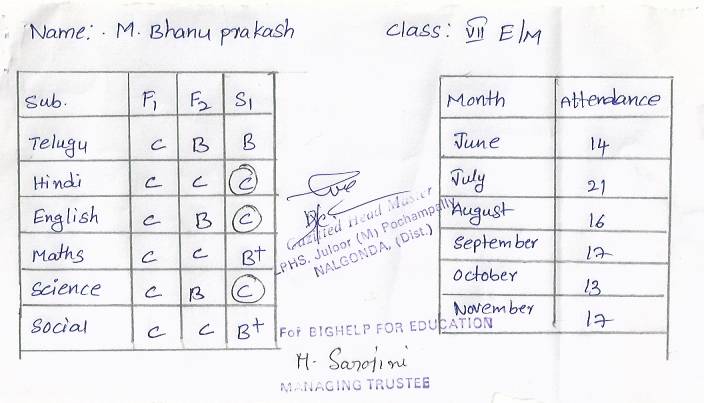 Name: M. Bhanu prakash
Class: VII E/M
Sub. F1 F2 S1
Telugu C B B
Hindi C C C
English C B C
Maths C C B+
Science C B C
Social C C B+
Month Attendance
June 14
July 21
August 16
September 17
October 13
November 17
Gazitied Head Master
PHS. Juloor (M) Pochampally
NALGONDA, (Dist.)
For BIGHELP FOR EDUCATION
M. Sarojini
MANAGING TRUSTEE